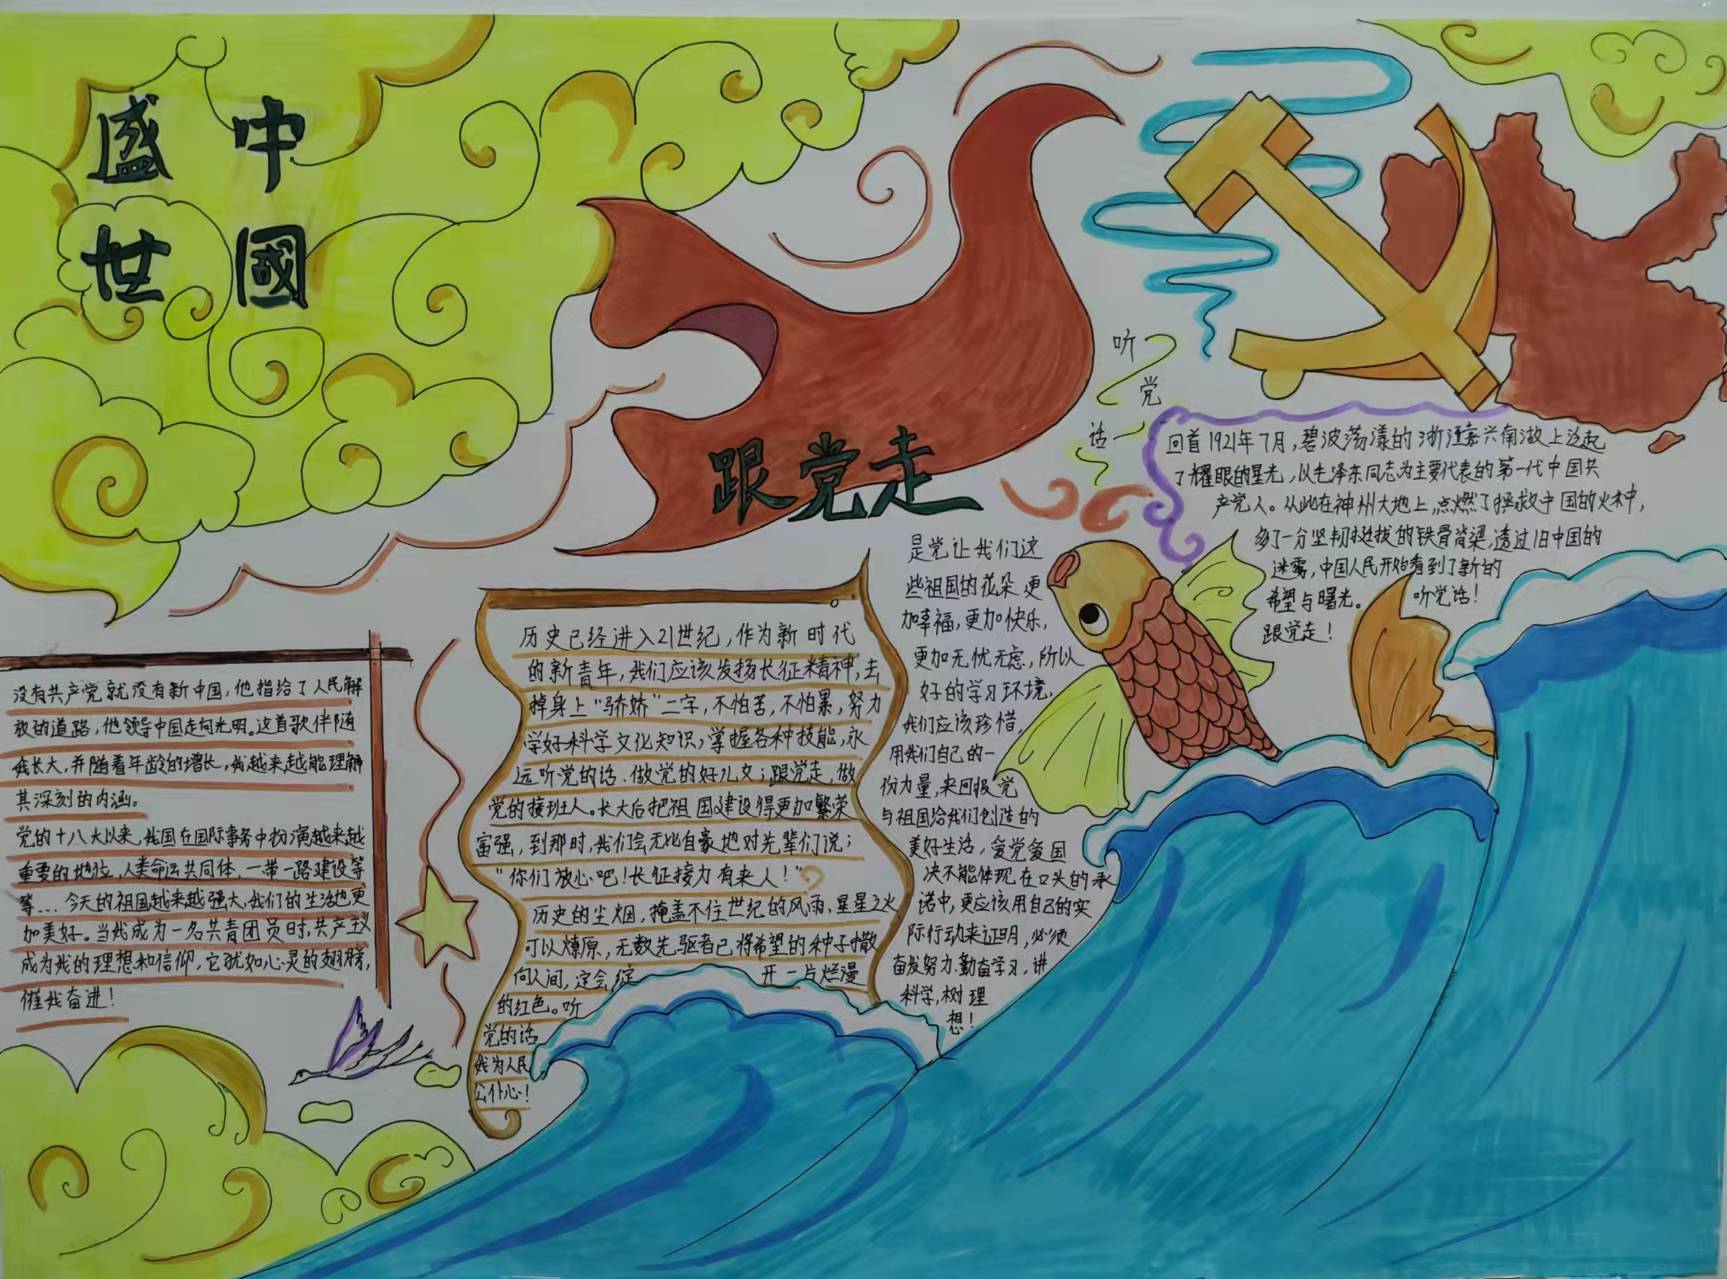 盛世
中國
跟党走
听
党
话
回首1921年7月，碧波荡漾的浙江嘉兴南湖上泛起
了耀眼的星光，以毛泽东同志为主要代表的第一代中国共
产党人。从此在神州大地上，点燃了拯救中国的火种，
多了一分坚韧挺拔的铁骨脊梁，透过旧中国的
迷雾，中国人民开始看到了新的
希望与曙光。 听党话！
跟党走！
是党让我们这
些祖国的花朵更
加幸福，更加快乐，
更加无忧无虑，所以
好的学习环境，
我们应该珍惜，
用我们自己的一
份力量，来回报党
与祖国给我们创造的
美好生活，爱党爱国
决不能体现在口头的承
诺中，更应该用自己的实
际行动来证明，必须
奋发努力、勤奋学习，讲
科学，树理
想！
历史已经进入21世纪，作为新时代
的新青年，我们应该发扬长征精神，去
掉身上“骄娇”二字，不怕苦，不怕累，努力
学好科学文化知识，掌握各种技能，永
远听党的话、做党的好儿女；跟党走，做
党的接班人。长大后把祖国建设得更加繁荣
富强，到那时，我们会无比自豪地对先辈们说；
“你们放心吧！长征接力有来人！”
历史的尘烟，掩盖不住世纪的风雨，星星之火
可以燎原，无数先驱者已将希望的种子撒
向人间，定会绽 开一片烂漫
的红色。听
党的话
我为人民
公仆心！
没有共产党就没有新中国，他指给了人民解
放的道路，他领导中国走向光明。这首歌伴随
我长大，并随着年龄的增长，我越来越能理解
其深刻的内涵。
党的十八大以来，我国在国际事务中扮演越来越
重要的地位，人类命运共同体，一带一路建设等
等…今天的祖国越来越强大，我们的生活也更
加美好。当我成为一名共青团员时，共产主义
成为我的理想和信仰，它犹如心灵的翅膀，
催我奋进！